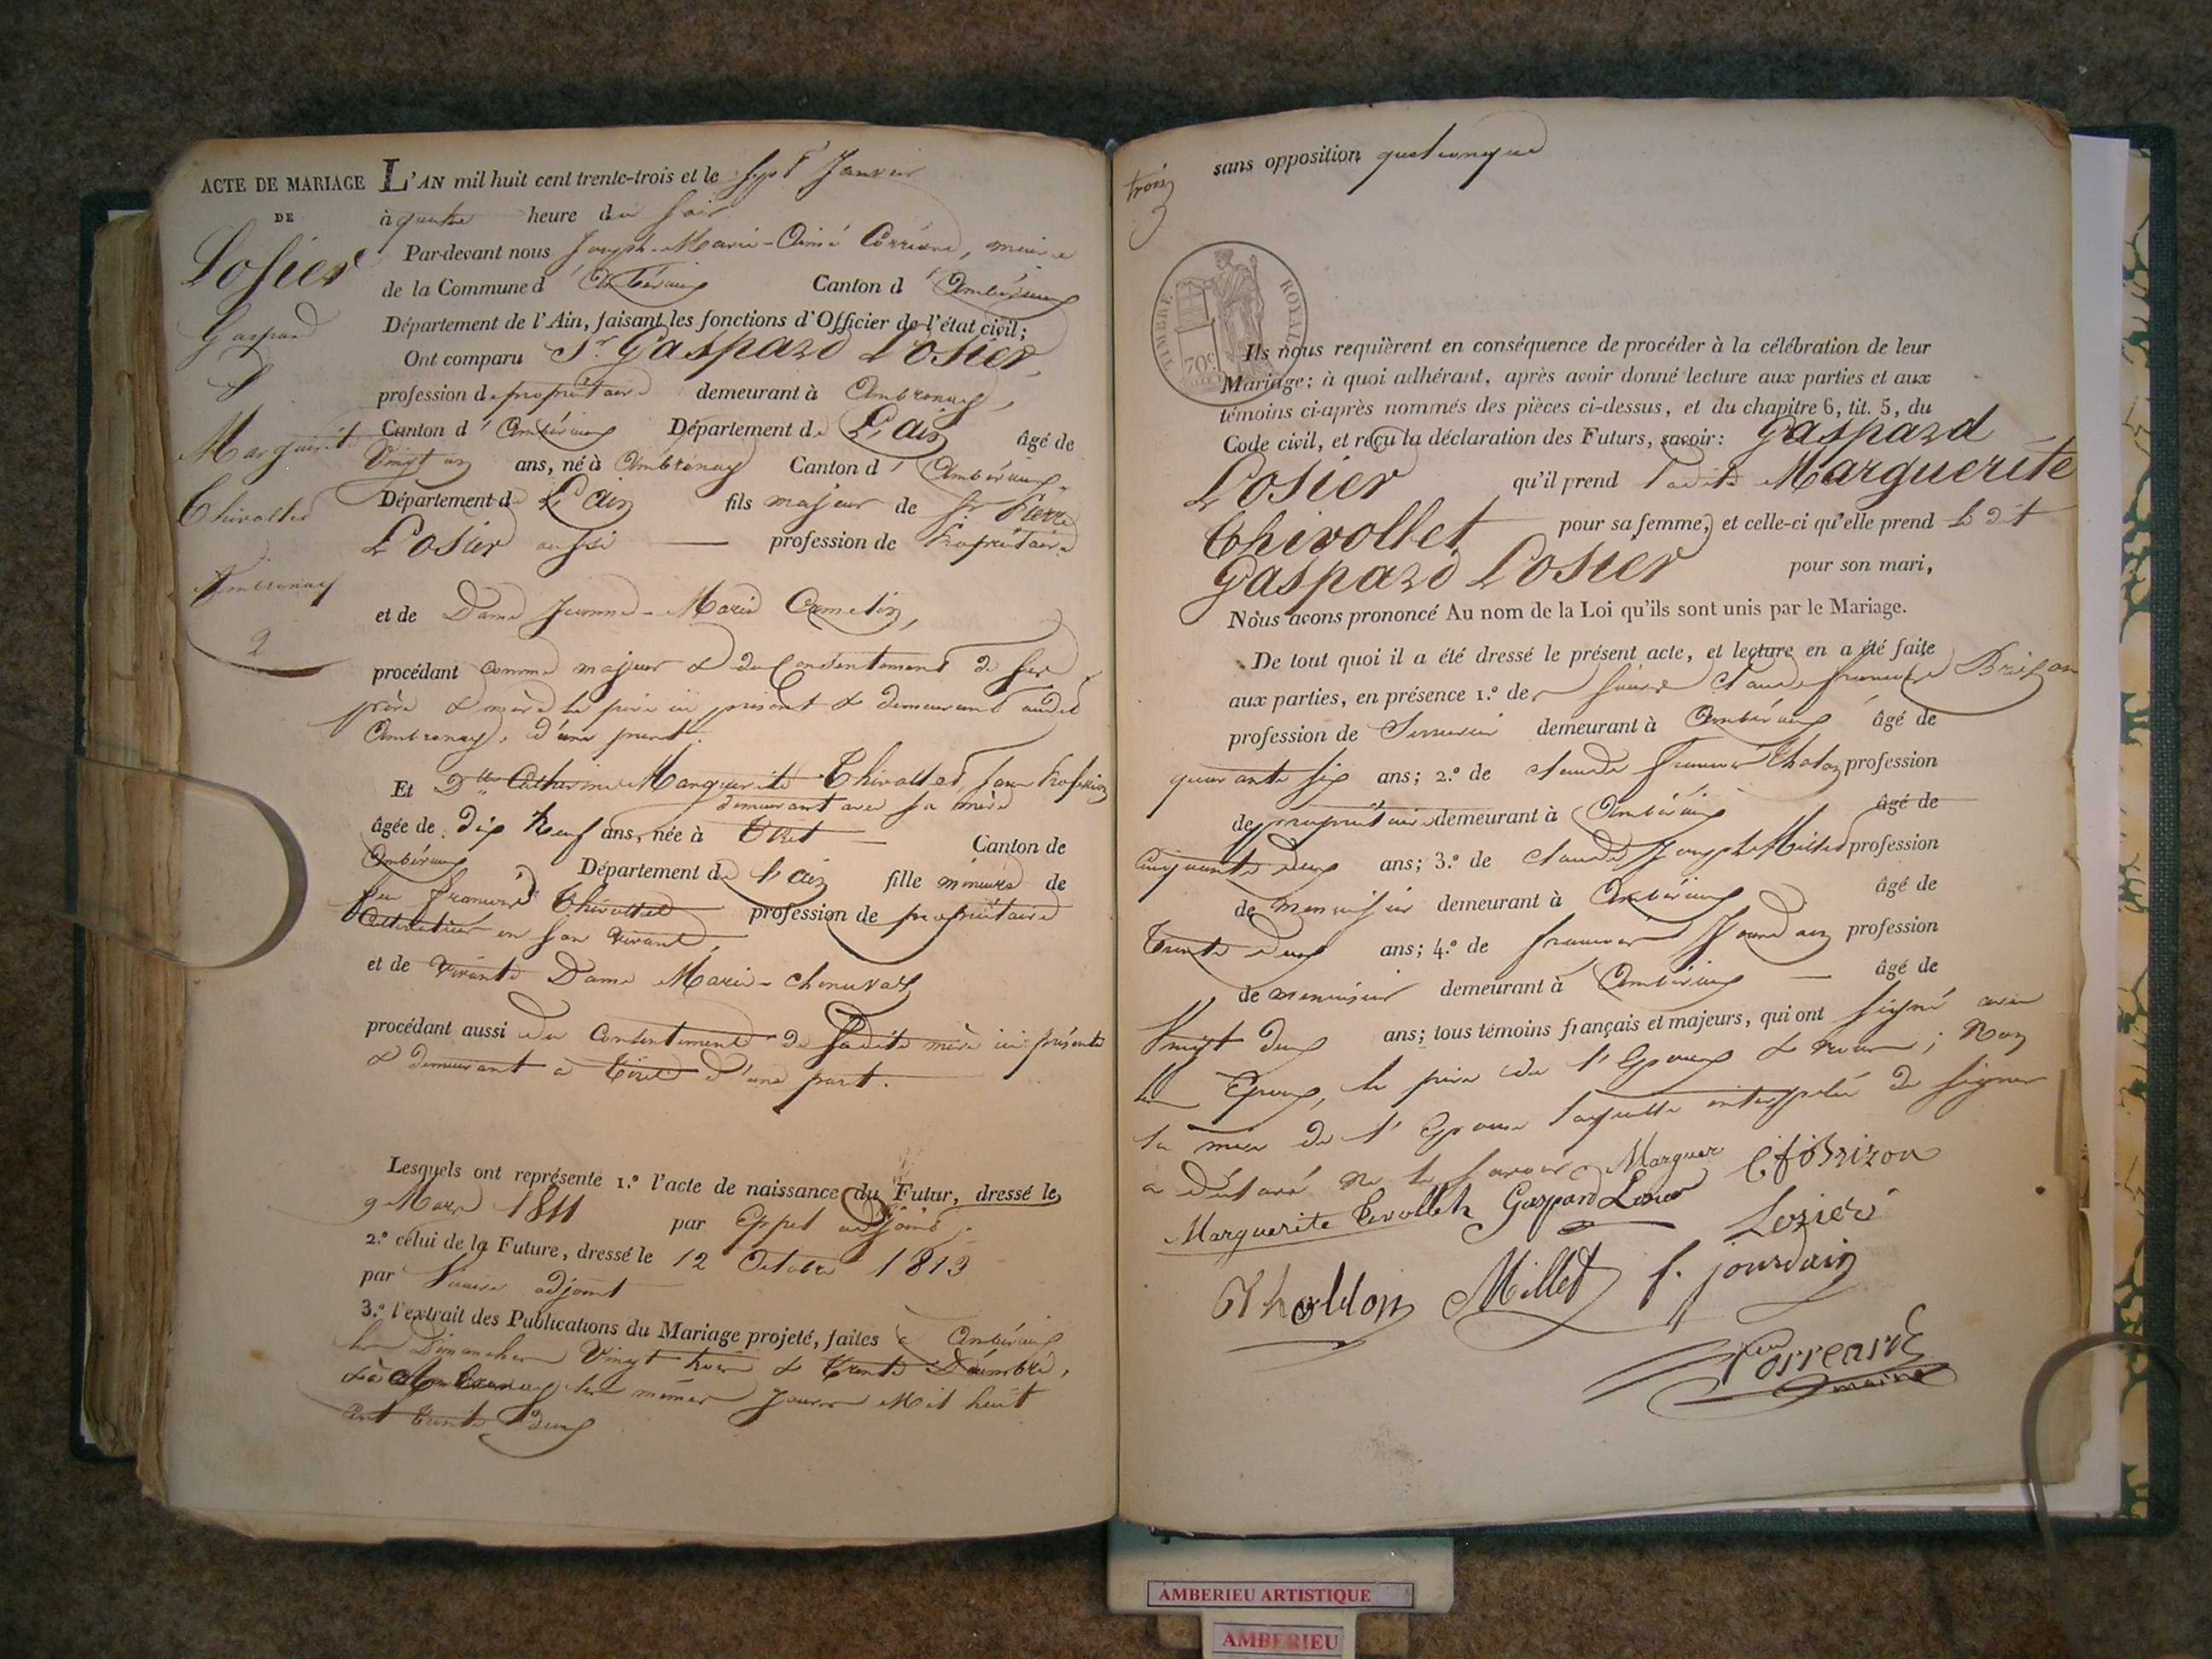 ACTE DE MARIAGE
DE
Losier
Gaspard
&
Marguerite
Thivollet
Ambronay
2
L'AN mil huit cent trente-trois et le sept Janvier
à quatre heure du soir
Par-devant nous Joseph-Marie-Aimé Corréard, maire
de la Commune d'Ambérieux Canton d'Ambérieux
Département de l'Ain, faisant les fonctions d'Officier de l'état civil;
Ont comparu Sr Gaspard Losier,
profession de propriétaire demeurant à Ambronay,
Canton d'Ambérieux Département de L'ain âgé de
Vingt un ans, né à Ambronay Canton d'Ambérieux
Département de L'ain fils majeur de Sr Pierre
Losier aussi profession de Propriétaire
et de Dame Jeanne-Marie
procédant comme majeur & du Consentement de ses
père & mère le père ici présent & demeurant audit
Ambronay, d'une part.
Et Dlle Catherine Marguerite Thivollet, sans Profession
demeurant avec sa mère
âgée de dix neuf ans, née à Tiret Canton de
Ambérieux Département de L'ain fille mineure de
feu François Thivollet profession de propriétaire
Cultivateur en son vivant,
et de Vivante Dame Marie-
procédant aussi du Consentement de sadite mère ici présente
& demeurant à Tiret d'une part.
Lesquels ont représenté 1.° l'acte de naissance du Futur, dressé le
9 Mars 1811 par adjoint.
2.° celui de la Future, dressé le 12 Octobre 1813
par adjoint
3.° l'extrait des Publications du Mariage projeté, faites à Ambérieux
les Dimanches Vingt trois & trente Décembre,
& à Ambronay les mêmes Jours Mil huit
cent trente deux
trois
3
sans opposition quelconque
TIMBRE ROYAL
70c
Ils nous requièrent en conséquence de procéder à la célébration de leur
Mariage; à quoi adhérant, après avoir donné lecture aux parties et aux
témoins ci-après nommés des pièces ci-dessus, et du chapitre 6, tit. 5, du
Code civil, et reçu la déclaration des Futurs, savoir: Gaspard
Losier qu'il prend ladite Marguerite
Thivollet pour sa femme, et celle-ci qu'elle prend le dit
Gaspard Losier pour son mari,
Nous avons prononcé Au nom de la Loi qu'ils sont unis par le Mariage.
De tout quoi il a été dressé le présent acte, et lecture en a été faite
aux parties, en présence 1.° de Claude François Brison
profession de Serrurier demeurant à Ambérieux âgé de
quarante six ans; 2.° de Claude François profession
de propriétaire demeurant à Ambérieux âgé de
Cinquante deux ans; 3.° de Claude Joseph Millet profession
de menuisier demeurant à Ambérieux âgé de
Trente deux ans; 4.° de François Jourdain profession
de menuisier demeurant à Ambérieux âgé de
Vingt deux ans; tous témoins français et majeurs, qui ont signé avec
les Epoux, le père de l'Epoux & nous; Non
la mère de l'Epouse laquelle interpelée de signer
a déclaré ne le savoir Marguer C f Brizon
Marguerite tevolleh Gaspard Losier
Lozier
Millet f. jourdain
Correard
maire
AMBERIEU ARTISTIQUE
AMBERIEU